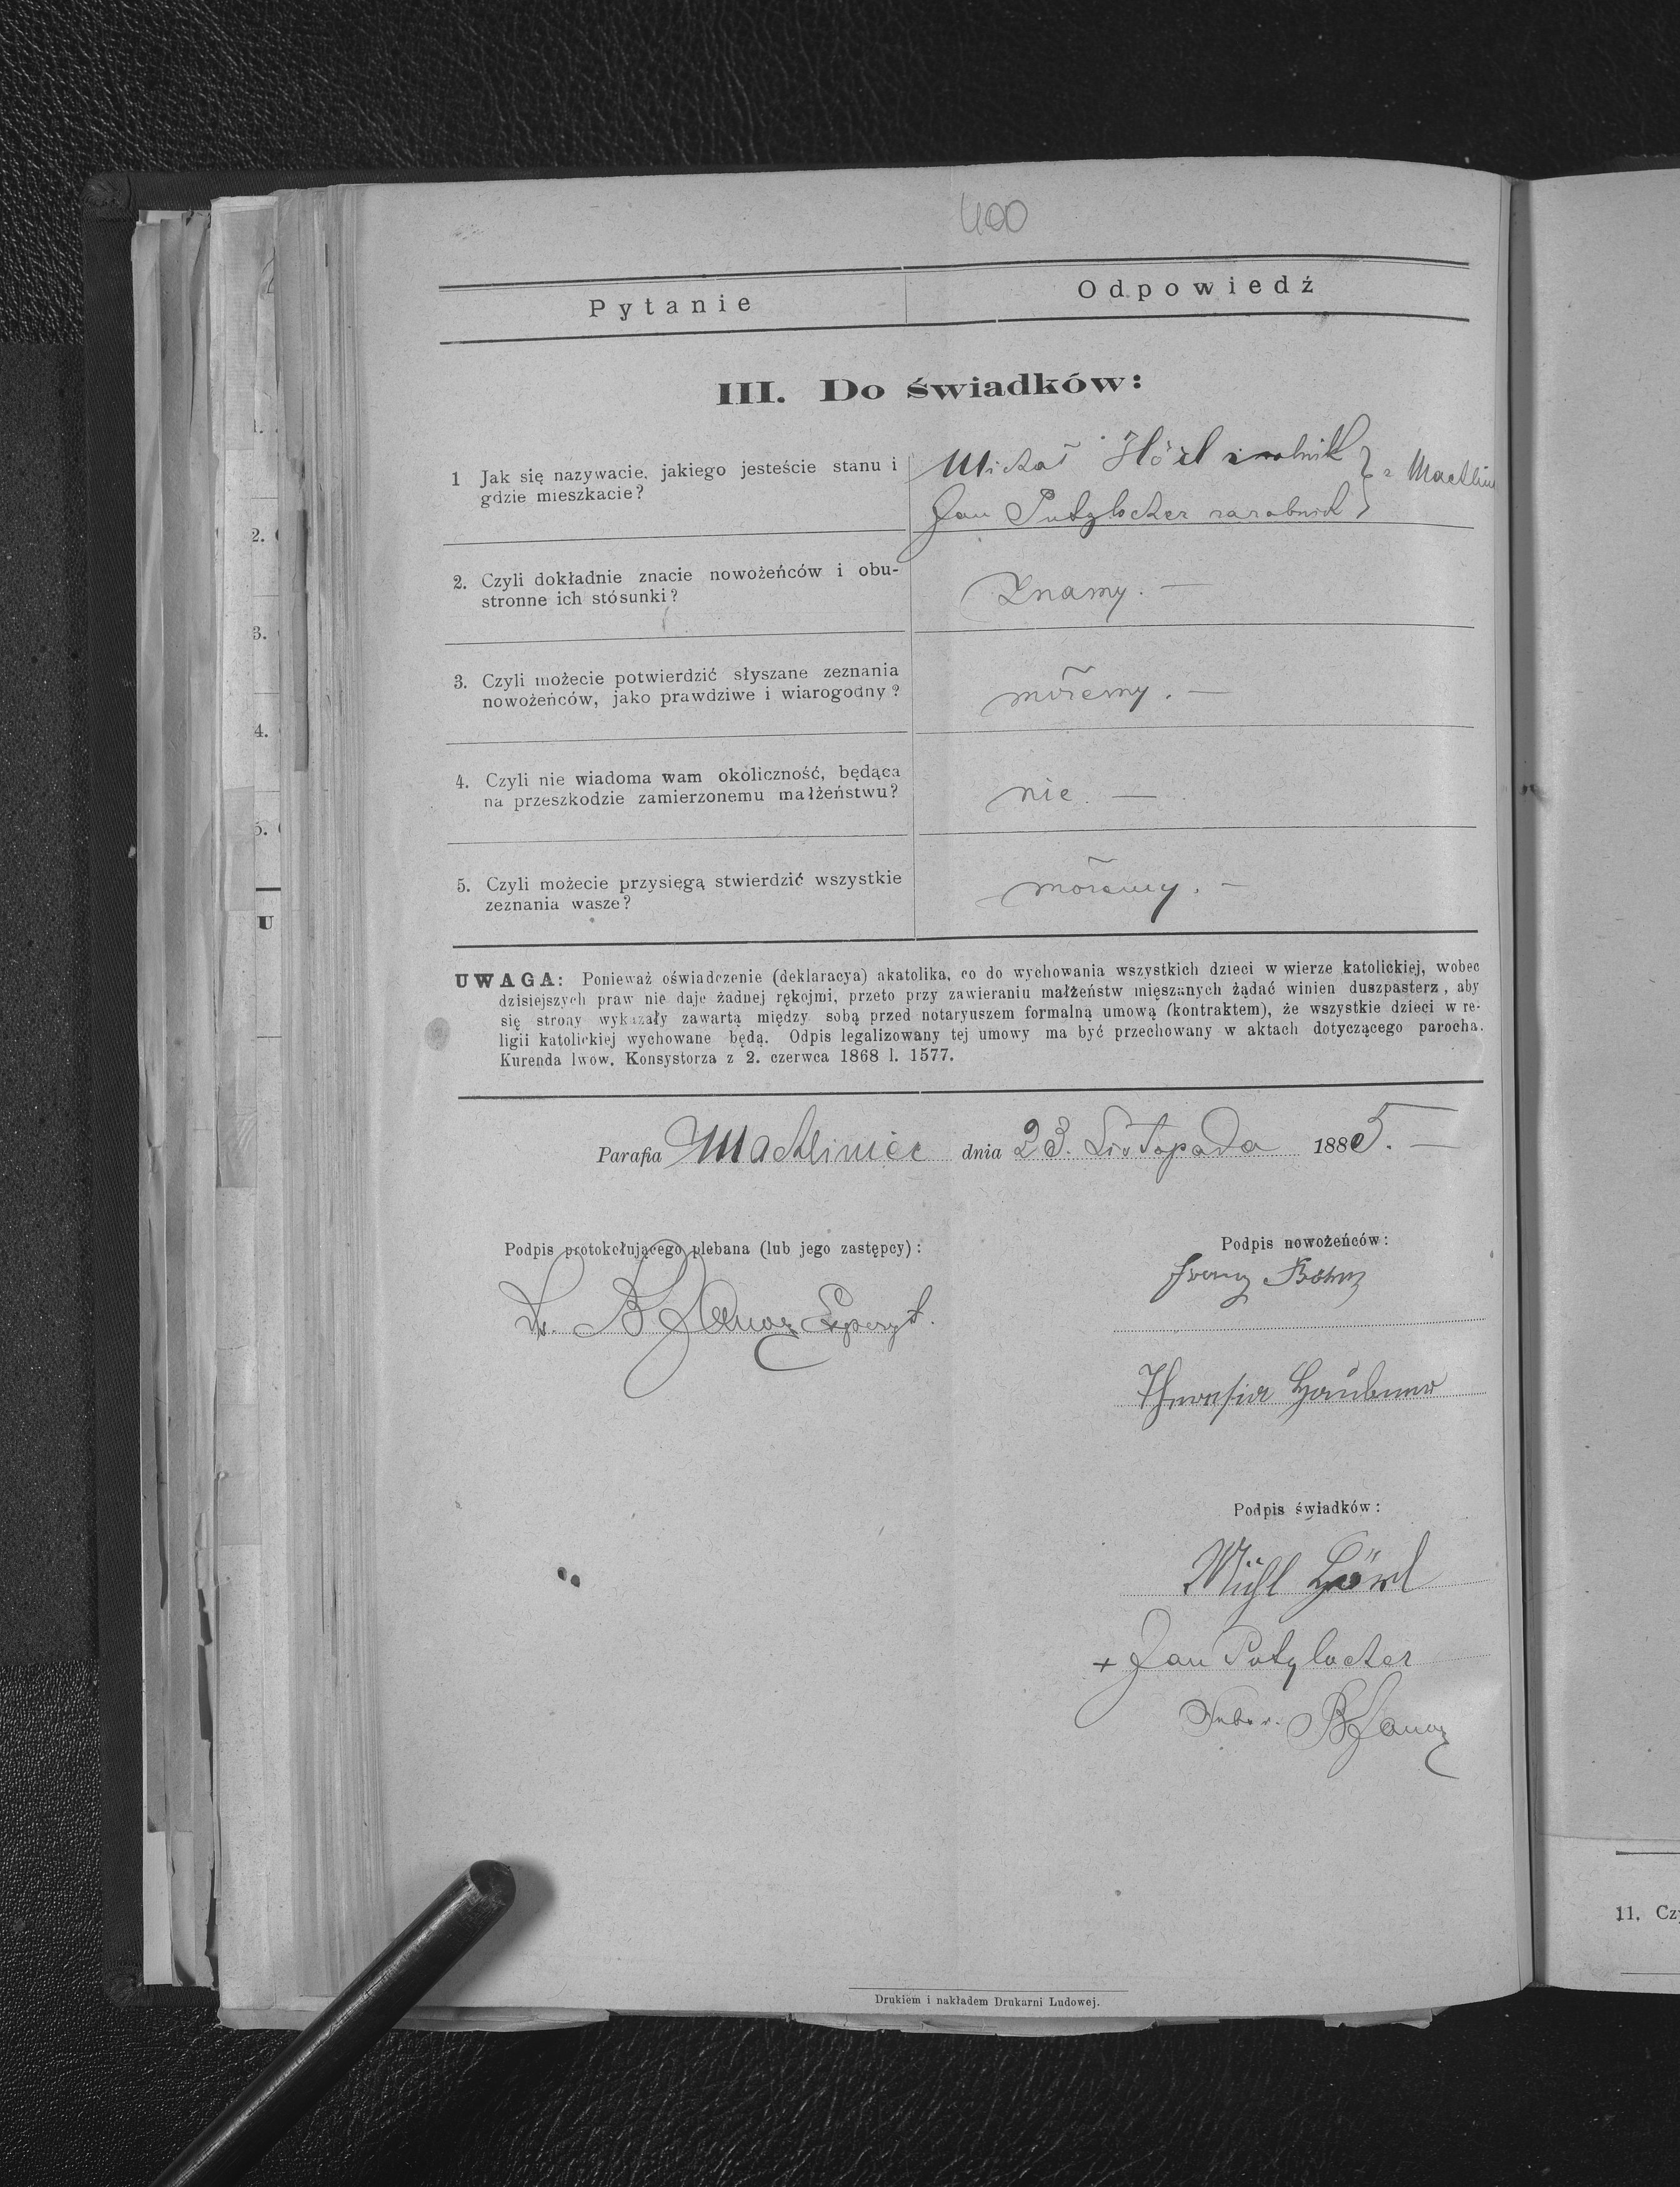 400
Pytanie
Odpowiedź
III. Do świadków:
1 Jak się nazywacie, jakiego jesteście stanu i
gdzie mieszkacie?
Michał Hözl
Jan Putzlocher zarobnik
z Machlin
2. Czyli dokładnie znacie nowożeńców i obu-
stronne ich stósunki?
Znamy. —
3. Czyli możecie potwierdzić słyszane zeznania
nowożeńców, jako prawdziwe i wiarogodny?
możemy. —
4. Czyli nie wiadoma wam okoliczność, będąca
na przeszkodzie zamierzonemu małżeństwu?
nie. —
5. Czyli możecie przysięgą stwierdzić wszystkie
zeznania wasze?
możemy. —
UWAGA: Ponieważ oświadczenie (deklaracya) akatolika, co do wychowania wszystkich dzieci w wierze katolickiej, wobec
dzisiejszych praw nie daje żadnej rękojmi, przeto przy zawieraniu małżeństw mięszanych żądać winien duszpasterz, aby
się strony wykazały zawartą między sobą przed notaryuszem formalną umową (kontraktem), że wszystkie dzieci w re-
ligii katolickiej wychowane będą. Odpis legalizowany tej umowy ma być przechowany w aktach dotyczącego parocha.
Kurenda lwow. Konsystorza z 2. czerwca 1868 l. 1577.
Parafia Machliniec dnia 23. Listopada 1885. —
Podpis protokołującego plebana (lub jego zastępcy):
Podpis nowożeńców:
Franz Böhm
Theresia
Podpis świadków:
Michl
+ Jan Putzlocher
Drukiem i nakładem Drukarni Ludowej.
1.
2.
3.
4.
5.
U
11. Cz